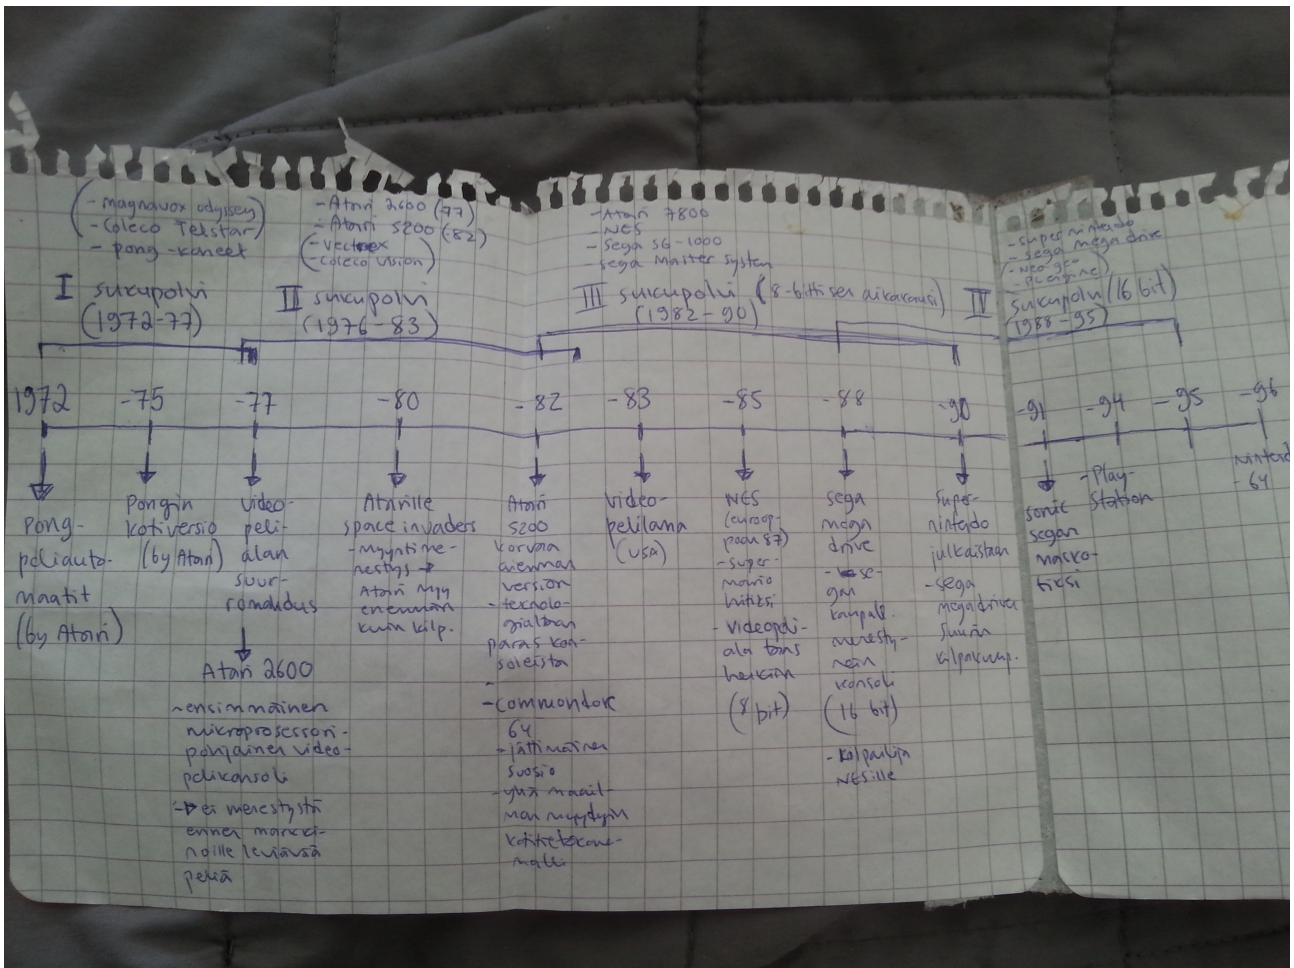 - magnavox odyssey
- Coleco Telstar
- pong-koneet
I sukupolvi
(1972-77)
- Atari 2600 (77)
- Atari 5200 (-82)
- vectrex
- coleco vision
II sukupolvi
(1976-83)
- Atari 7800
- NES
- Sega SG-1000
- Sega Master System
III sukupolvi (8-bittisen aikakausi)
(1982-90)
- super nintendo
- sega mega drive
- neo geo
IV
sukupolvi (16 bit)
(1988-95)
1972 -75 -77 -80 -82 -83 -85 -88 -90 -91 -94 -95 -96
pong-
peliauto-
maatit
(by Atari)
Pongin
kotiversio
(by Atari)
video-
peli-
alan
suur-
romahdus
Atari 2600
- ensimmäinen
mikroprosessori-
pohjainen video-
pelikonsoli
→ ei menestystä
ennen markki-
noille leviävää
peliä
Atarille
space invaders
- myyntime-
nestys →
Atari myy
enemmän
kuin kilp.
Atari
5200
korvaa
aiemman
version
- teknolo-
gialtaan
paras kon-
soleista
-
- commondore
64
- jättimäinen
suosio
- yhä maail-
man myydyin
kotitietokone-
malli
video-
pelilama
(USA)
NES
(euroop-
paan 87)
- super-
mario
hitiksi
- videopeli-
ala taas
(8 bit)
sega
mega
drive
- se-
gan
kaupall.
menesty-
nein
konsoli
(16 bit)
- kilpailija
NESille
super-
nintendo
julkaistaan
- sega
megadriven
suurin
kilpakump.
sonic
segan
masko-
tiksi
- Play-
station
nintendo
- 64